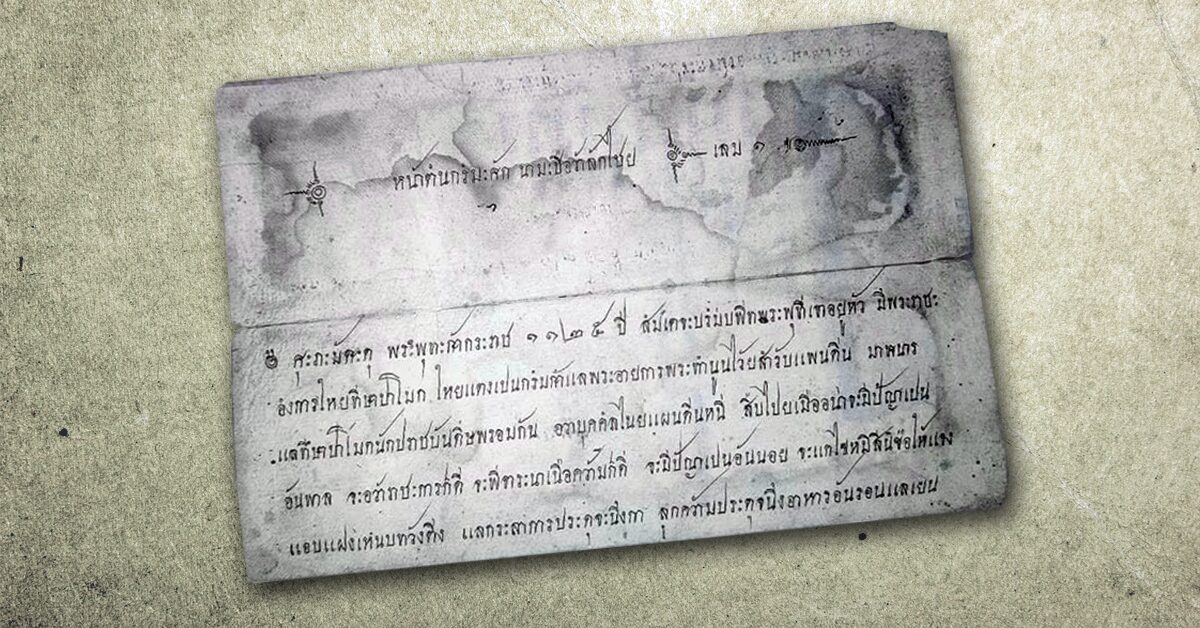 หน้าต้นกริมะสัก นามะชือว่าลักไชย เลม ๑
ศุะภะมัศะดุ พระพุทะศักระราช ๑๑๒๕ ปี สัมเดจะบรัมบพีตพระพุทีเจาอยู่หัว มีพระราชะ
อ้งการไหย ไหยแตงเปนกรัมศักแลพระอายการพระทำนูนไว้ยสำรับแพนดีน นาคนาร
แลทีษาปาโมกนักปราชบันดีษพรอมกัน อวาบุคคลไนยแผนดีนหนี สืบไปยเมือนาจะมีปัญาเปน
อันพาล จะอวัราชะการกดี จะพีจาระนาเนือความกดี จะมีปัญาเปนอันนอย จะแกไข ให้แจง
แอบแฝงเหนบทวังตึง แลกระลาการประดุจะนึงกา ลูกความประดุจนึงอาหารอันรอนแลเยน